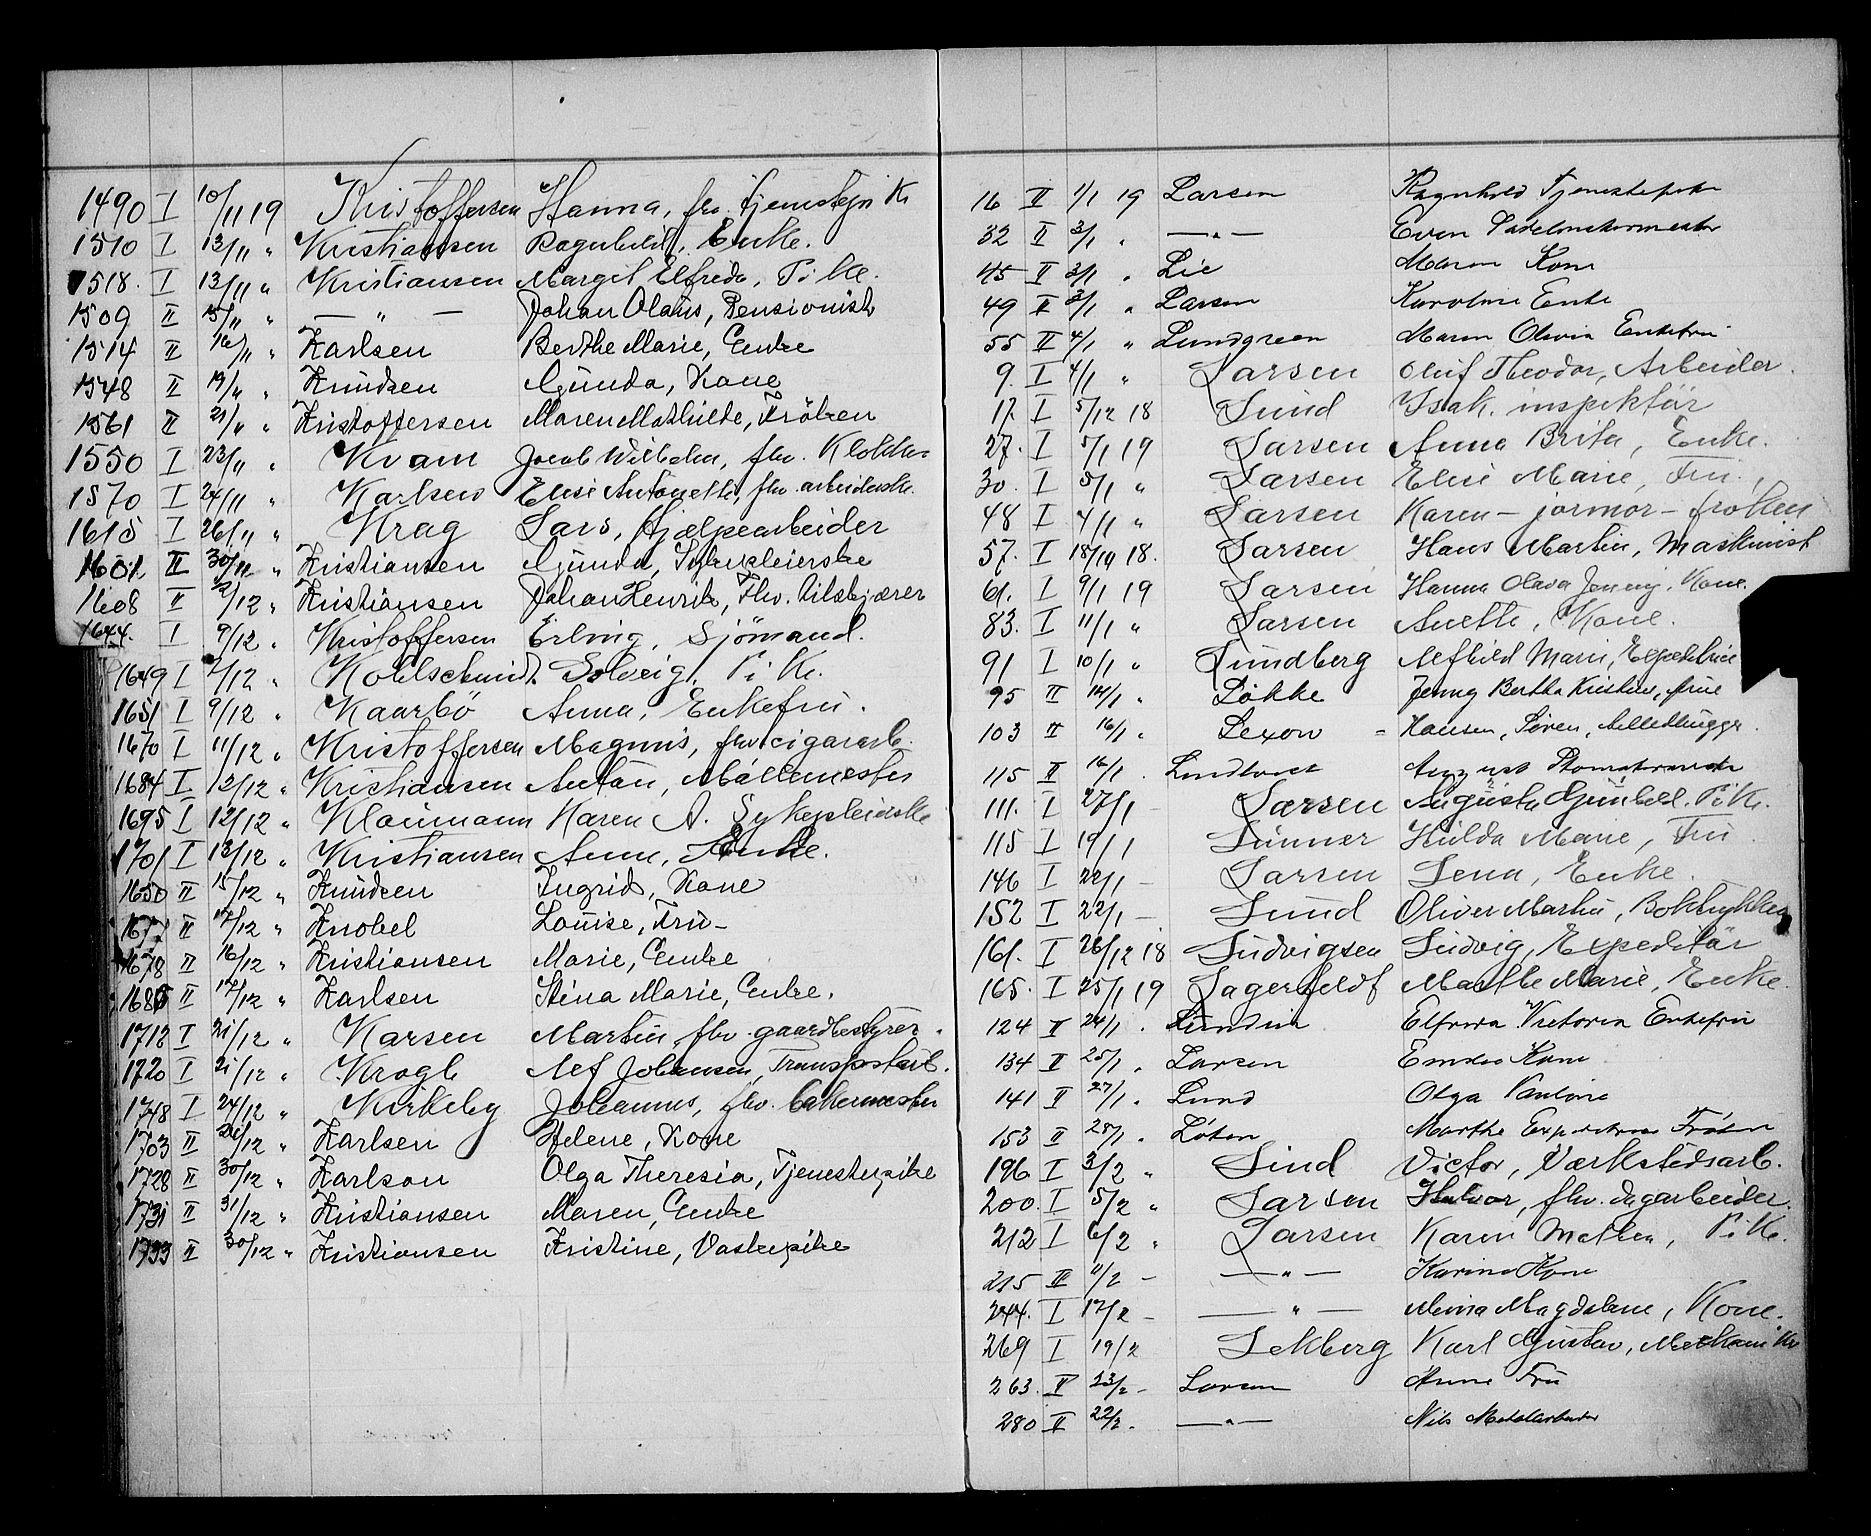 1490 I 10/11 19 Kristoffersen Hanna, fhv. tjenestepike
1510 I 13/11 " Kristiansen Ragnhild, Enke.
1518. I 13/11 " Kristiansen Margit Elfreda, Pike.
1509 II 15/11 " — " — Johan Olaus, Pensionist
1514 II 16/11 " Karlsen Berthe Marie, Enke
1548 II 19/11 " Knudsen Gunda, Kone
1561 II 21/11 " Kristoffersen Maren Mathilde, Fröken
1550 I 23/11 " Kvam Jacob Wilhelm, fhv. Klokker
1570 I 24/11 " Karlsen Elise Antonette, fhv. arbeiderske.
1615 I 26/11 " Krag Lars, Hjælpearbeider
1601 II 30/11 " Kristiansen Gunda, Sykepleierske
1608 II 2/12 " Kristiansen Johan Henrik, Fhv.
1644. I 9/12 " Kristoffersen Erling, Sjömand.
1649 I 7/12 " Kohlschmidt. Solveig, Pike.
1651 I 9/12 " Kaarbö Anna, Enkefru.
1670 I 11/12 " Kristoffersen Magnus, fhv. cigararb.
1684 I 12/12 " Kristiansen Anton, Mâllemester
1695 I 12/12 " Klaumann Karen A. Sykepleierske
1701 I 13/12 " Kristiansen Anne, Enke.
1650 II 15/12 " Knudsen Ingrid, Kone
1677 II 17/12 " Knobel Louise, Fru-
1678 II 16/12 " Kristiansen Marie, Enke
1685 II 17/12 " Karlsen Stina Marie, Enke.
1712 I 21/12 " Karsen Martin, fhv. gaardbestyrer.
1720 I 21/12 " Krogh Alf Johansen, Transportarb.
1748 I 24/12 " Kirkeby Johannes, fhv. bakermester
1703 II 26/12 " Karlsen Helene, Kone
1728 II 30/12 " Karlson Olga Theresia, Tjenestepike
1731 II 31/12 " Kristiansen Maren, Enke
1733 II 30/12 " Kristiansen Kristine, Vaskepike
16 II 1/1 19 Larsen Ragnhild Tjenestepike
32 II 3/1 " — " — Even
45 II 3/1 " Lie Maren Kone
49 II 3/1 " Larsen Karoline Enke
55 II 4/1 " Lundgreen Maren Olivia Enkefru
9. I 4/1 " Larsen Oluf Theodor, Arbeider.
17. I 5/12 18 Lund Isak. inspektör
27. I 5/1 19 Larsen Anna Brita, Enke.
30. I 5/1 " Larsen Elise Marie, Fru.
48 I 4/1 " Larsen Karen - jormor - frøken
57. I 18/14 18. Larsen Hans Martin, Maskinist
61. I 9/1 19 Larsen Hanna Olava Jenny, Kone.
83. I 11/1 " Larsen Anette, Kone.
91 I 10/1 " Lundberg Alfhild Marie, Expeditrice
95 II 14/1 " Løkke Jenny Bertha Kristine, frue
103 II 16/1 " Lexon - Hansen, Søren,
115 II 16/1 . August
111. I 27/1 - Larsen Augusta Gunhild. Pike.
115 I 19/1 Linner Hulda Marie, Fru
146 I 22/1 - Larsen Lena, Enke.
152 I 22/1 - Lund Oliver Martin, Boktrykker
161. I 26/12 18 Ludvigsen Ludvig, Expeditör
165. I 25/1 19 Lagerfeldt Marthe Marie, Enke.
124 II 24/1 . Elfrida Victoria Enkefru
134 II 25/1 . Larsen Emder Kone
141 II 27/1 . Lund Olga Pauline
153 II 28/1 . Løken Marthe Frøken
196 I 3/2 " Lind Victor, Værkstedsarb.
200. I 5/2 " Larsen Halvor, fhv. dagarbeider.
212 I 6/2 " Larsen Karen Mathea, Pike.
215 II 11/2 - — " — Karine Kone
244. I 17/2 - — " — Mina Magdalene, Kone.
269 I 19/2 Lekberg Karl Gustav, Mekaniker
263. II 23/2 - Larsen Anne Fru
280 II 22/2 . — " — Nils Metalarbeider